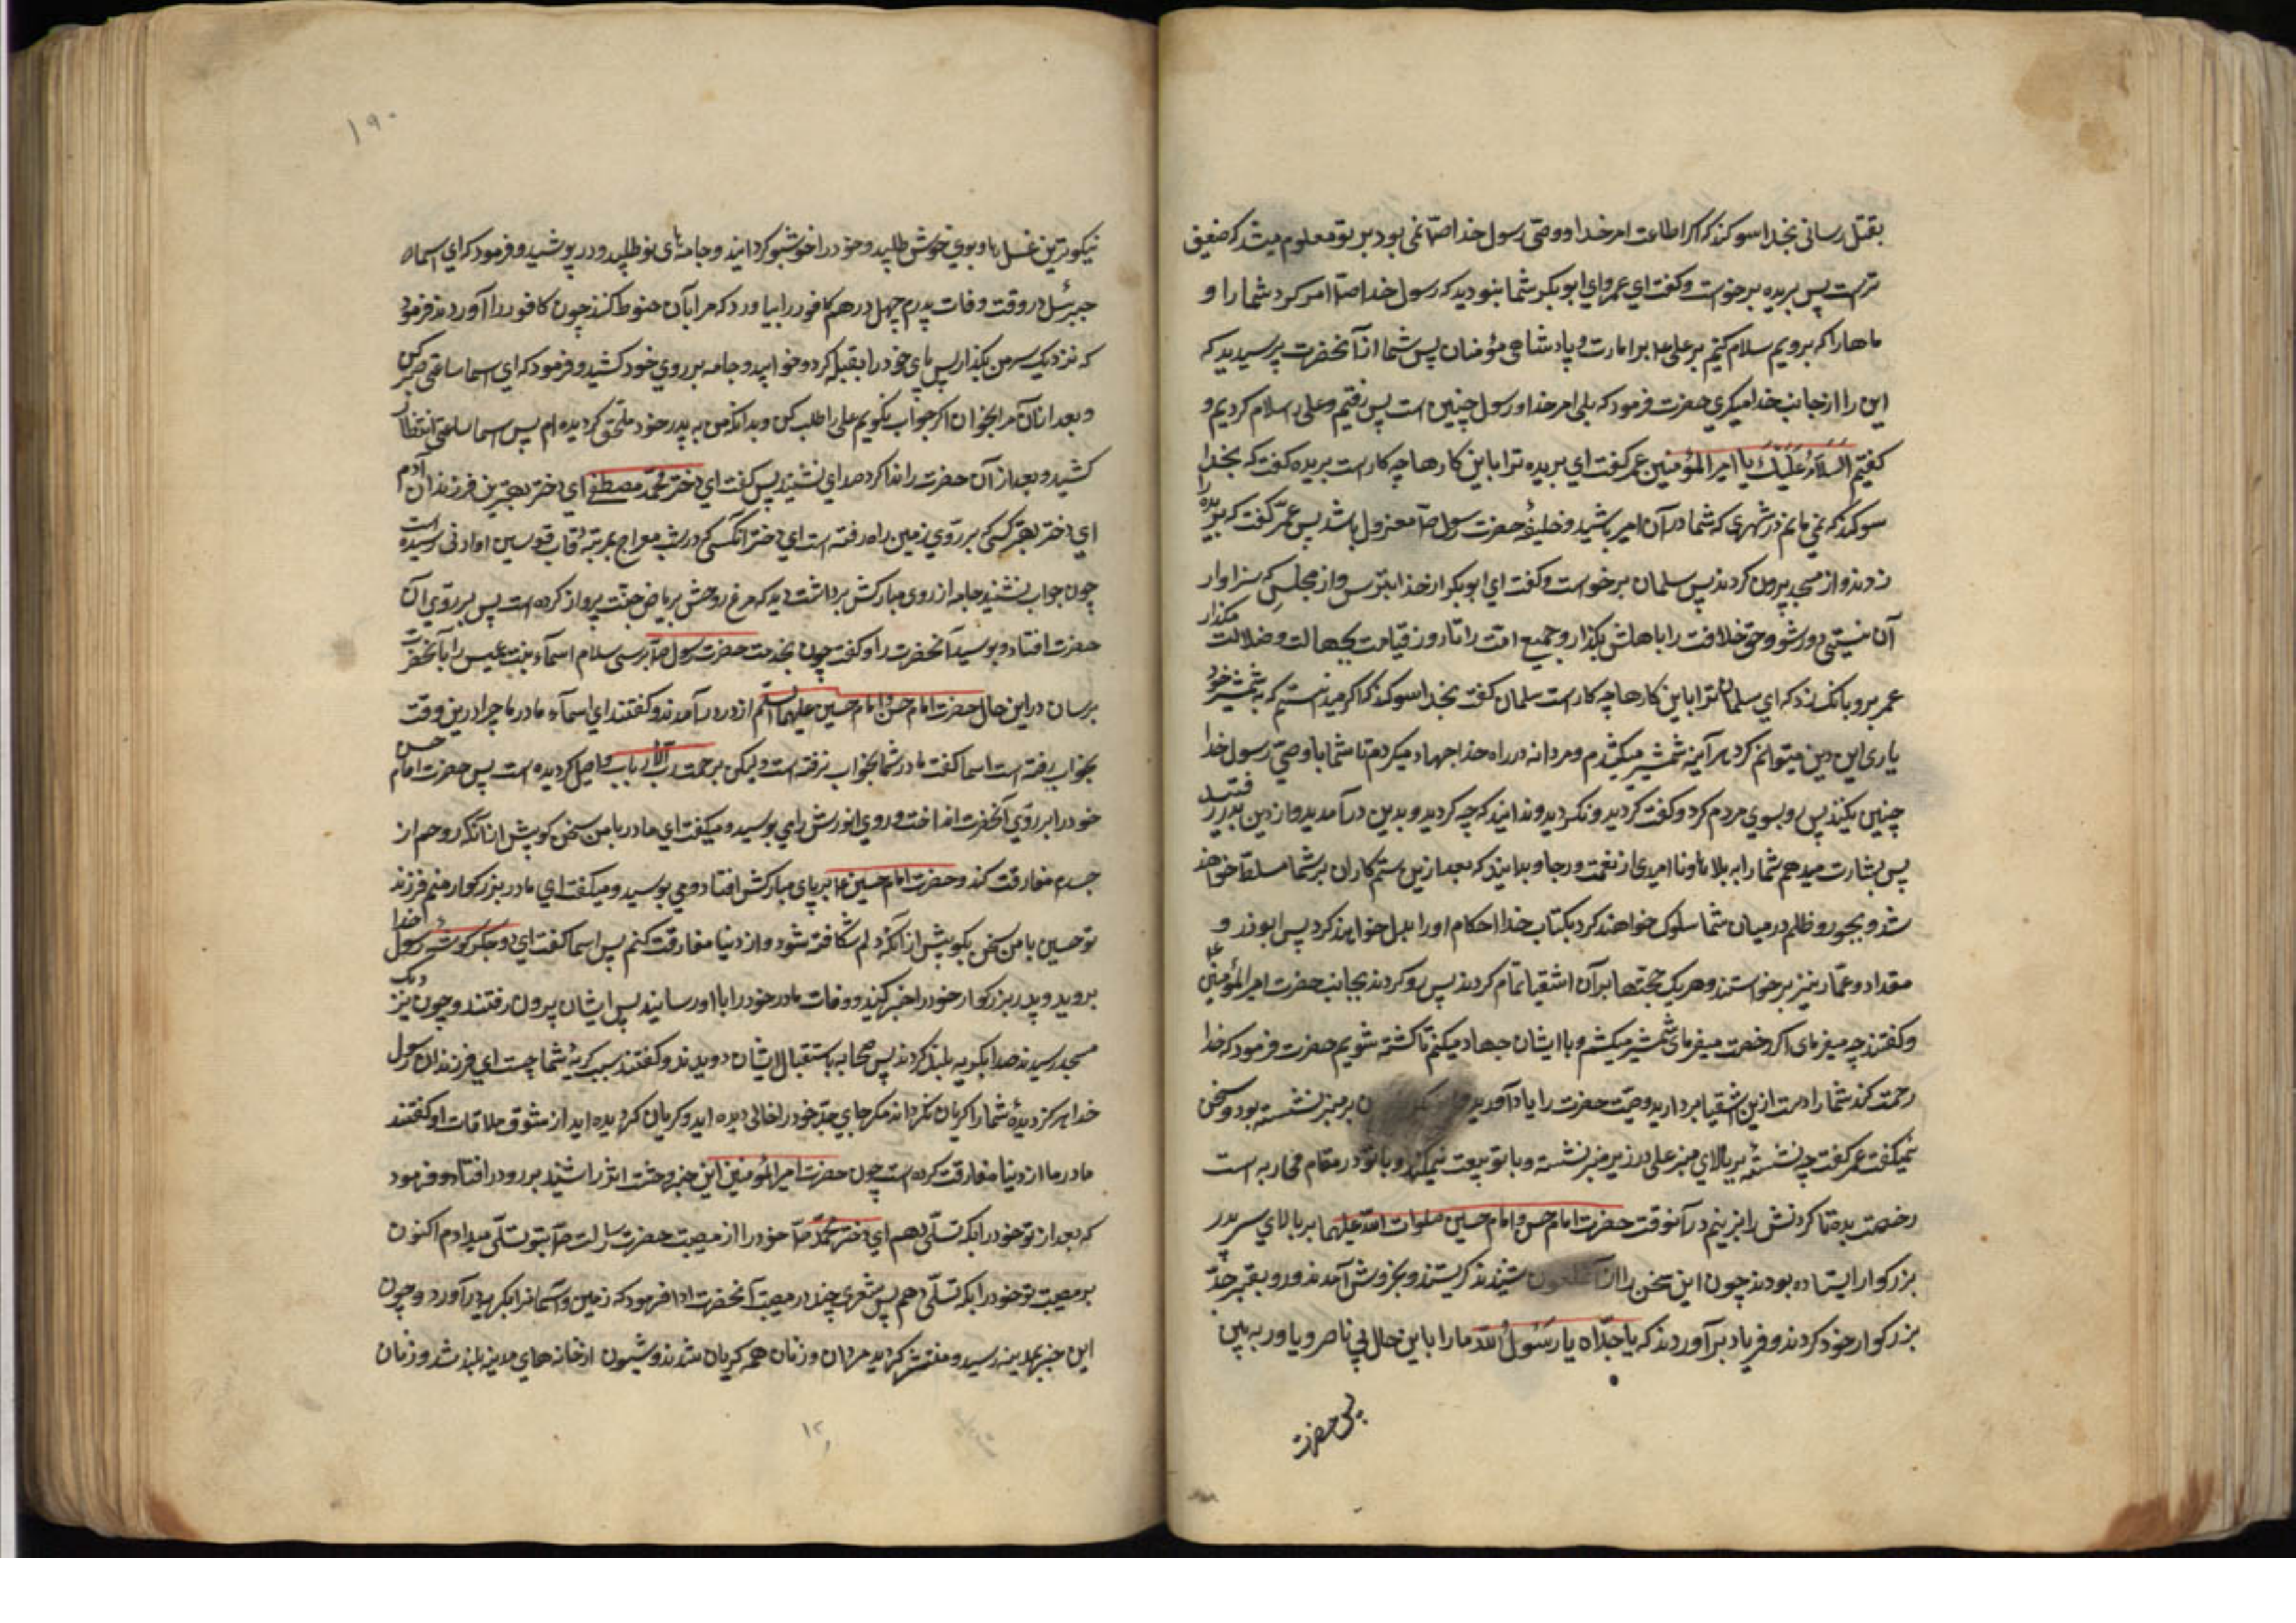 بقتل رسانی بخدا سوکند که اکر اطاعت امر خدا و وصی رسول خدا صا نمی بود بر تو معلوم میشد که ضعیف
تر است پس بریده برخواست و کفت ای عمر و ای ابوبکر شما نبودید که رسول خدا صا امر کرد شما را و
ماها را که برویم سلام کنیم بر علی ع م برامارت و پادشاهی مؤمنان پس شما از آنحضرت پرسیدید که
این را از جانب خدا میکوی حضرت فرمود که بلی امر خدا و رسول چنین است پس رفتیم و علی را سلام کردیم و
کفتیم السَّلَامُ عَلَیْکَ یا امیر المؤمنین عمر کفت ای بریده ترا باین کارها چه کار است بریده کفت که بخدا
سوکند که نمی مانم در شهری که شما در آن امیر باشید و خلیفهٔ حضرت رسول صا معزول باشد پس عمر کفت که بریده را
زدند و از مسجد بیرون کردند پس سلمان برخواست و کفت ای ابوبکر از خدا بترس و از مجلسی که سزاوار
آن نیستی دور شو و حق خلافت را باهلش بکذار و جمیع امت را تا روز قیامت بجهالت و ضلالت مکذار
عمر برو بانک زد که ای سلمان ترا باین کارها چه کار است سلمان کفت بخدا سوکند که اکر میدانستیم که بشمشیر خود
یاری این دین میتوانم کرد هر آینه شمشیر میکشیدم و مردانه در راه خدا جهاد میکردم تا شما با وصی رسول خدا
چنین نکنید پس رو بسوی مردم کرد و کفت کردید و نکردید و ندانید که چه کردید و بدین در آمدید و از دین بدر رفتید
پس بشارت میدهم شما را به بلاها و ناامیدی از نعمت و رجا و بدانید که بعد ازین ستم کاران بر شما مسلط خواهند
شد و بجور و ظلم در میان شما سلوک خواهند کرد بکتاب خدا احکام او را بدل خواهند کرد پس ابوذر و
مقداد و عمّار نیز برخواستند و هریک حجتها بر آن اشقیا تمام کردند پس رو کردند بجانب حضرت امیر المؤمنین ع
و کفتند چه میفرمای اکر رخصت میفرمای شمشیر میکشم و با ایشان جهاد میکنم تا کشته شویم حضرت فرمود که خدا
رحمت کند شما را دست ازین اشقیا بردارید وصیت حضرت را یاد آورید و بر منبر نشسته بود و سخن
نمیکفت عمر کفت چه نشستهٔ بر بالای منبر علی در زیر منبر نشسته و با تو بیعت نمیکند و با تو در مقام محاربه است
رخصت بده تا کردنش را بزنیم در آنوقت حضرت امام حسن و امام حسین صلوات الله علیهما بر بالای سر پدر
بزرکوار ایستاده بودند چون این سخن را از آن ملعون شنیدند کریستند و بخروش آمدند و رو بقبر جدّ
بزرکوار خود کردند و فریاد بر آوردند که یا جدّاه یا رسُولُ الله ما را باین حال بی ناصر و یاور به بین
پس حضرت
۱۹۰
نیکوترین غسل ها و بوی خوش طلبید و خود را خوشبو کردانید و جامهای نو طلبید و در پوشید و فرمود که ای اسماء
جبرئیل در وقت وفات پدرم چهل درهم کافور را بیاورد که مرا بآن حنوط کنند چون کافور را آوردند فرمود
که نزدیک سر من بکذار پس پای خود را بقبله کرد و خوابید و جامه بر روی خود کشید و فرمود که ای اسما ساعتی صبر کن
و بعد از آن مرا بخوان اکر جواب نکویم علی را طلب کن و بدانکه من به پدر خود ملحق کردیده ام پس اسما ساعتی انتظار
کشید و بعد از آن حضرت را ندا کرد صدای نشنید پس کفت ای دختر محمّد مصطفی ای دختر بهترین فرزندان آدم
ای دختر بهتر کسی که بر روی زمین راه رفته است ای دختر آنکسی که در شب معراج بمرتبه قاب قوسین او ادنی رسیده است
چون جواب نشنید جامه از روی مبارکش برداشت دید که مرغ روحش بریاض جنّت پرواز کرده است پس بر روی آن
حضرت افتاد و بوسید آنحضرت را و کفت چون بخدمت حضرت رسول صا برسی سلام اسماء بنت عمیس را بآنحضرت
برسان در این حال حضرت امام حسن و امام حسین علیهما السلم از در در آمدند و کفتند ای اسماء مادر ما چرا درین وقت
بخواب رفته است اسما کفت مادر شما بخواب نرفته است و لیکن برحمت رب الارباب واصل کردیده است پس حضرت امام حسن
خود را بر روی آنحضرت انداخت و روی انورش را می بوسید و میکفت ای مادر با من سخن کو پیش از آنکه روحم از
جسدم مفارقت کند و حضرت امام حسین عا بر پای مبارکش افتاد و می بوسید و میکفت ای مادر بزرکوار منم فرزند
تو حسین با من سخن بکو پیش از آنکه دلم شکافته شود و از دنیا مفارقت کنم پس اسما کفت ای دو جکر کوشهٔ رسول خدا
بروید و پدر بزرکوار خود را خبر کنید و وفات مادر خود را با او رسانید پس ایشان بیرون رفتند و چون نزدیک
مسجد رسیدند صدا بکریه بلند کردند پس صحابه باستقبال ایشان دویدند و کفتند سبب کریهٔ شما چیست ای فرزندان رسول
خدا هرکز دیدهٔ شما را کریان نکرداند مکر جای جدّ خود را خالی دیده اید و کریان کردیده اید از شوق ملاقات او کفتند
مادر ما از دنیا مفارقت کرده است چون حضرت امیر المؤمنین این خبر وحشت اثر را شنید بر رو در افتاد و فرمود
که بعد از تو خود را بکه تسلّی دهم ای دختر محمّد صا خود را از مصیبت حضرت رسالت صا بتو تسلّی میدادم اکنون
بر مصیبت تو خود را بکه تسلّی دهم پس شعری چند در مصیبت آنحضرت ادا فرمود که زمین و آسمانرا بکریه در آورد و چون
این خبر بمدینه رسید و منتشر کردید مردان و زنان همه کریان شدند و شیون از خانه های مدینه بلند شد و زنان
۱۲